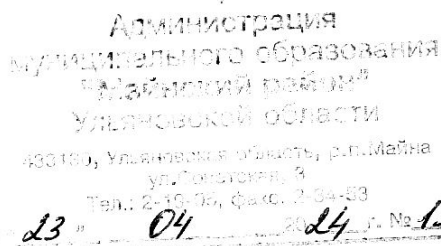 Администрация
муниципального образования
"Майнский район"
Ульяновской области
433130, Ульяновская область, р.п.Майна
ул.Советская, 3
Тел.: факс. 2-34-53
"23" 04 2024 г. №